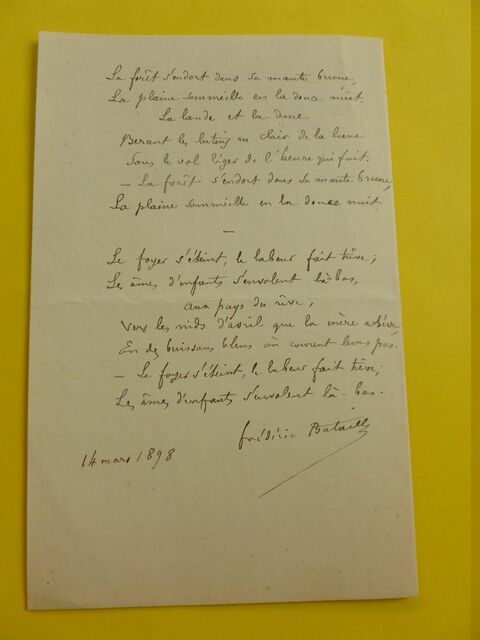 La forêt s'endort dans sa mante brune,
La plaine sommeille en la douce nuit.
La lande et la dune
Bercent les lutins au clair de la lune
Sous le vol léger de l'heure qui fuit.
— La forêt s'endort dans sa mante brune,
La plaine sommeille en la douce nuit.
—
Le foyer s'éteint, le labeur fait trêve ;
Les âmes d'enfants s'envolent là-bas,
Aux pays du rêve,
Vers les nids d'avril que la mère achève,
En des buissons bleus où courent leurs pas.
— Le foyer s'éteint, le labeur fait trêve ;
Les âmes d'enfants s'envolent là-bas.
Frédéric Bataille
14 mars 1898